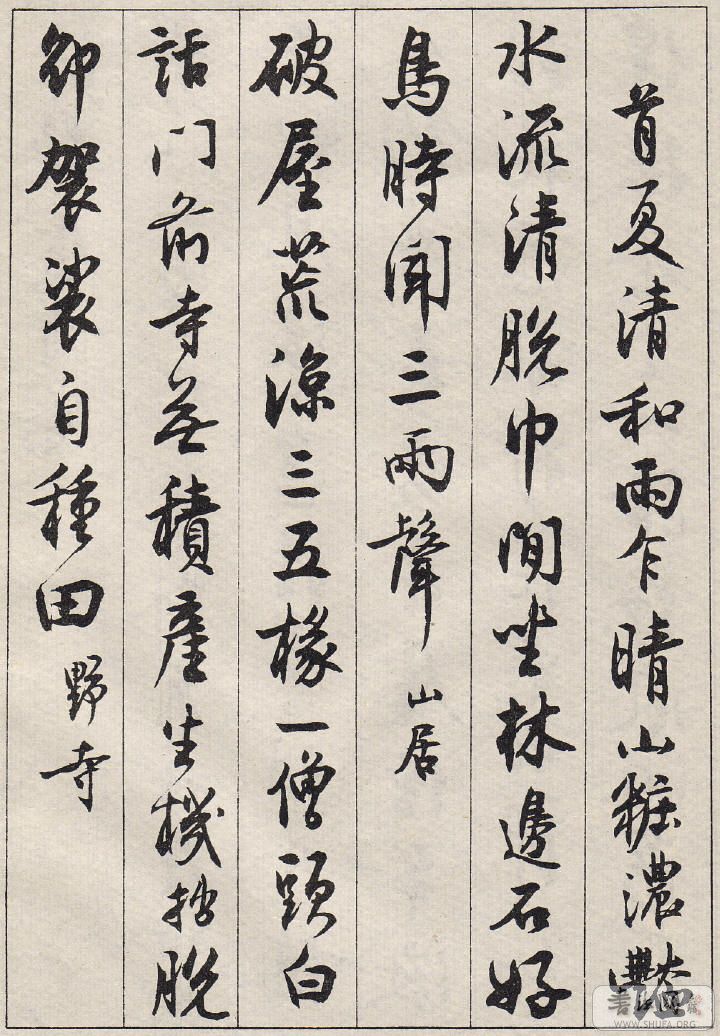 首夏清和雨乍晴山粧濃艷
水流清脫巾閒坐林邊石好
鳥時聞三兩聲 山居
破屋荒涼三五椽一僧頭白
話門前寺無積產生機拙脫
卻袈裟自種田 野寺
WWW.SHUFA.ORG